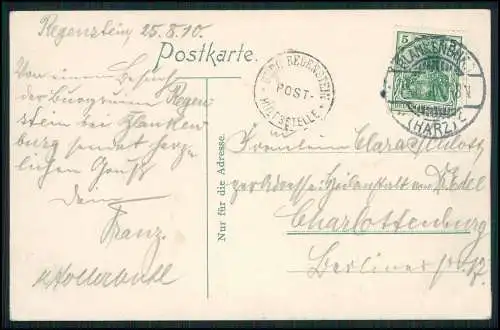 Regenstein, 25.8.10.
Postkarte.
Von einem Besuch
der Burgruine Regen
stein bei Blanken
burg sendet herz
lichen Gruß
Dein
Franz.
Nur für die Adresse.
BURG REGENSTEIN
POST-
HILFSSTELLE
5
BLANKENBURG
(HARZ)
Fräulein Clara Schlott
Charlottenburg
Berliner